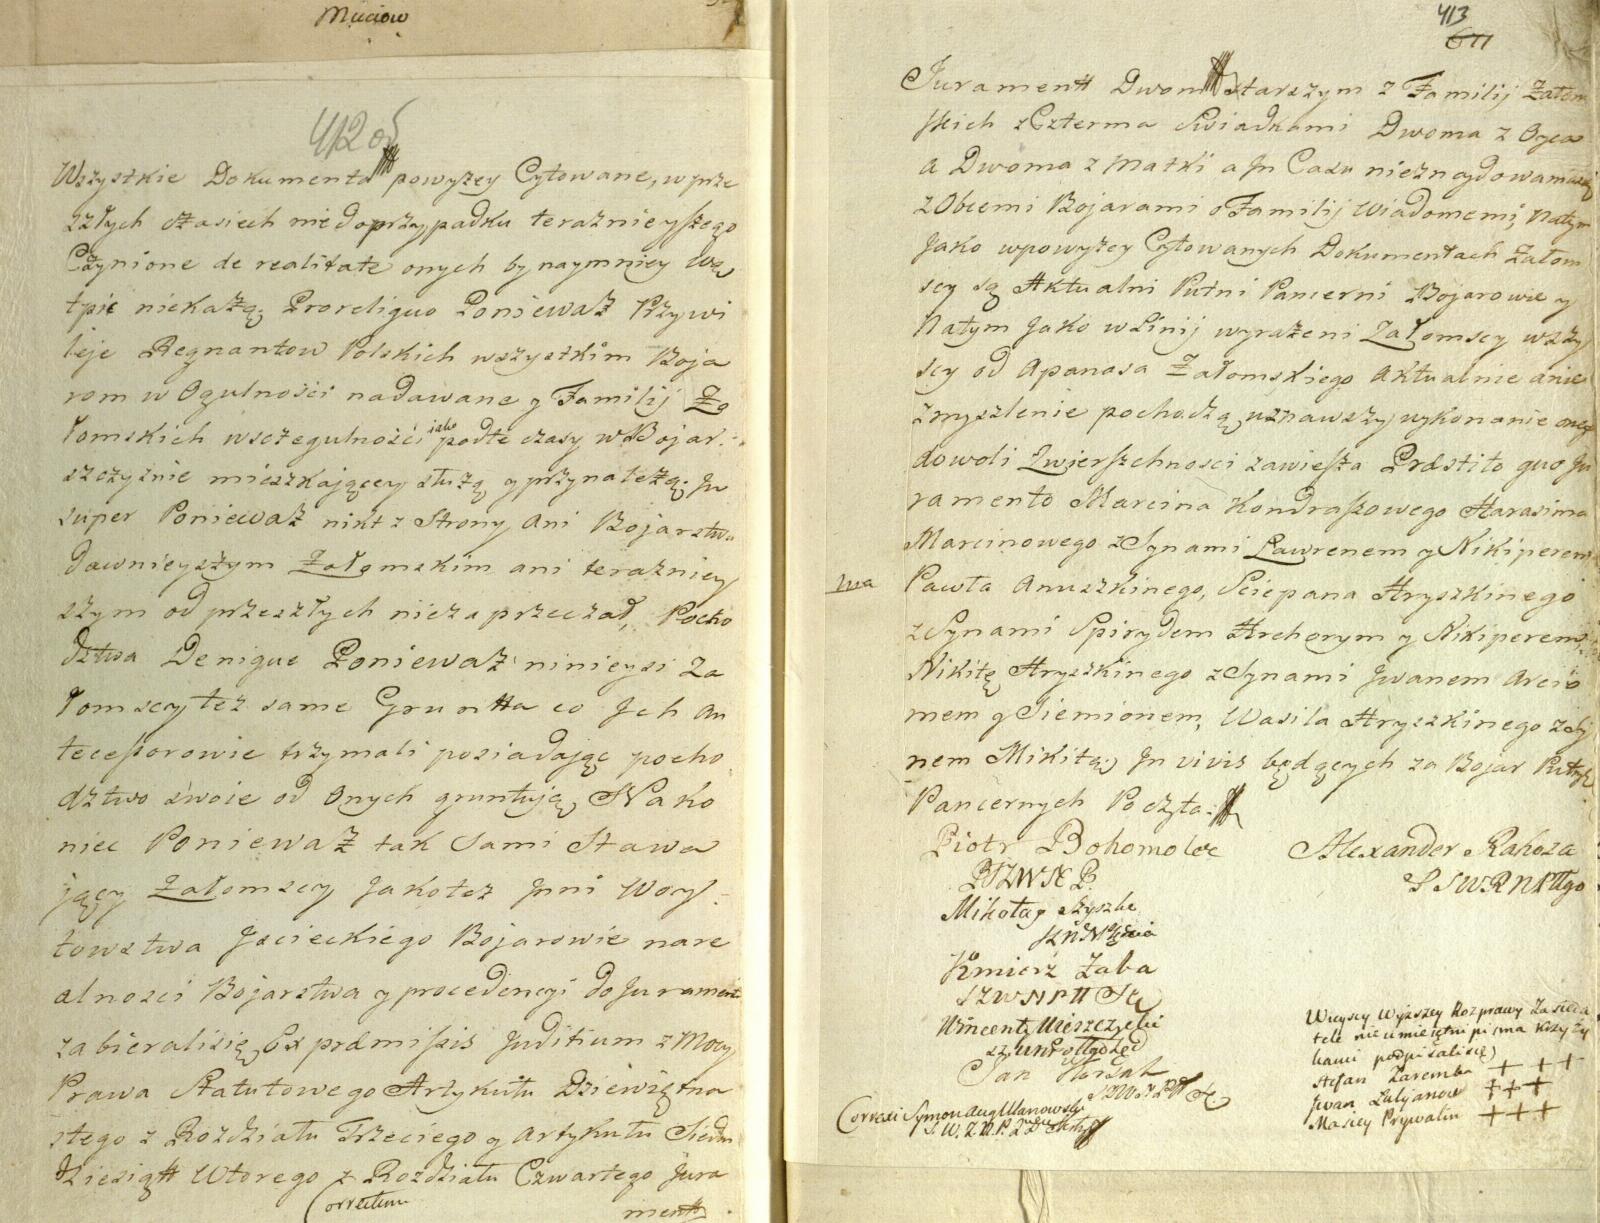 Muciow
412 of
Wszystkie Dokumenta powyżey Cytowane, w prze
szłych czasiech nie do przypadku teraznieyszego
Czynione de realitate onych by naymniey Wą
tpic niekażą; Proreliquo Poniewaz Przywi
leje Regnantow Polskich wszystkim Boja
rom w Ogulności nadawane y Familij Za
łomskich wsczegulności iako podte czasy w Bojar:
szczyznie mieszkaiącey służą y przynależą; In
super Poniewaz nikt z Strony Ani Bojarstwa
dawnieyszym Załomskim ani terazniey
szym od przeszłych niezaprzeczał, Pocho
dztwa Denique Poniewaz ninieysi Za
łomscy też same Grunta co Ich An
tecessorowie trzymali posiadając pocho
dztwo swoie od Onych gruntują, Nako
niec Poniewaz tak Sami Stawa
jący Załomscy Jakotez Inni Woy
towstwa Jscieckiego Bojarowie nare
alnosci Bojarstwa y procedencyi do Jurament
zabieralisię, Ex præmissis Juditium z Mocy
Prawa Statutowego Artykułu Dziewiętna
stego z Rozdziału Trzeciego y Artykułu Siedm
dziesiątt Wtorego z Rozdziału Czwartego Jura
Correctum
ment
413
611
Jurament Dwom Starszym z Familij Załom
skich z Czterma Swiadkami Dwoma z Oyca
a Dwoma z Matki a In Casu nieznaydowania
z Obcemi Bojarami o Familij Wiadomemi, Natym
Jako wpowyżey Cytowanych Dokumentach Załom
scy są Aktualni Putni Pancerni Bojarowie y
Natym Jako w Linij wyrażeni Załomscy wszy
scy od Apanasa Załomskiego Aktualnie anie
zmyszlenie pochodzą, uznawszy, wykonanie oney
dowoli Zwierszchnosci zawiesza Præstito quo Ju
ramento Marcina Kondraszowego Harasima
Marcinowego z Synami Lawrenem y Nikiperem
Pawła Anuszkinego, Sciepana Hryszkinego
z Synami Spirydem Hrehorym y Nikiperem,
Nikitę Hryszkinego z Synami Jwanem Arcio
mem y Siemionem, Wasila Hryszkinego z Sy
nem Mikitą; In vivis będących za Bojar Putnych
Pancernych Poczyta.
Piotr Bohomolec
Alexander Rahoza
Mikołay
Kmierz Zaba
Wincenty
Jan
Correxi Symon Aug Ulanowski
Wieyscy Wyższey Rozprawy Zasieda
tele nie umieiętni pisma Krzyży
kami podpisalisię
Stefan Zaremba + + +
Jwan Luljanow + + +
Maciey Prywalin + + +